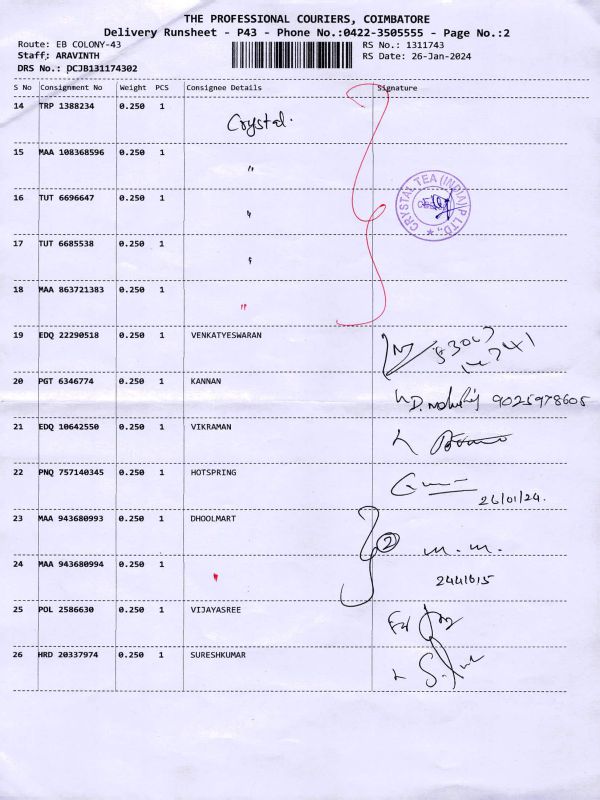 THE PROFESSIONAL COURIERS, COIMBATORE
Delivery Runsheet - P43 - Phone No.:0422-3505555 - Page No.:2
Route: EB COLONY-43 RS No.: 1311743
Staff: ARAVINTH RS Date: 26-Jan-2024
DRS No.: DCJB131174302
S No Consignment No Weight PCS Consignee Details Signature
14 TRP 1388234 0.250 1 Crystal.
15 MAA 108368596 0.250 1 "
16 TUT 6696647 0.250 1 "
CRYSTAL TEA (INDIA) P LTD., *
17 TUT 6685538 0.250 1 "
18 MAA 863721383 0.250 1 "
19 EDQ 22290518 0.250 1 VENKATYESWARAN
20 PGT 6346774 0.250 1 KANNAN 9025978605
21 EDQ 10642550 0.250 1 VIKRAMAN
22 PNQ 757140345 0.250 1 HOTSPRING
26/01/24.
23 MAA 943680993 0.250 1 DHOOLMART 2 m. m.
24 MAA 943680994 0.250 1 2441615
25 POL 2586630 0.250 1 VIJAYASREE
26 HRD 20337974 0.250 1 SURESHKUMAR